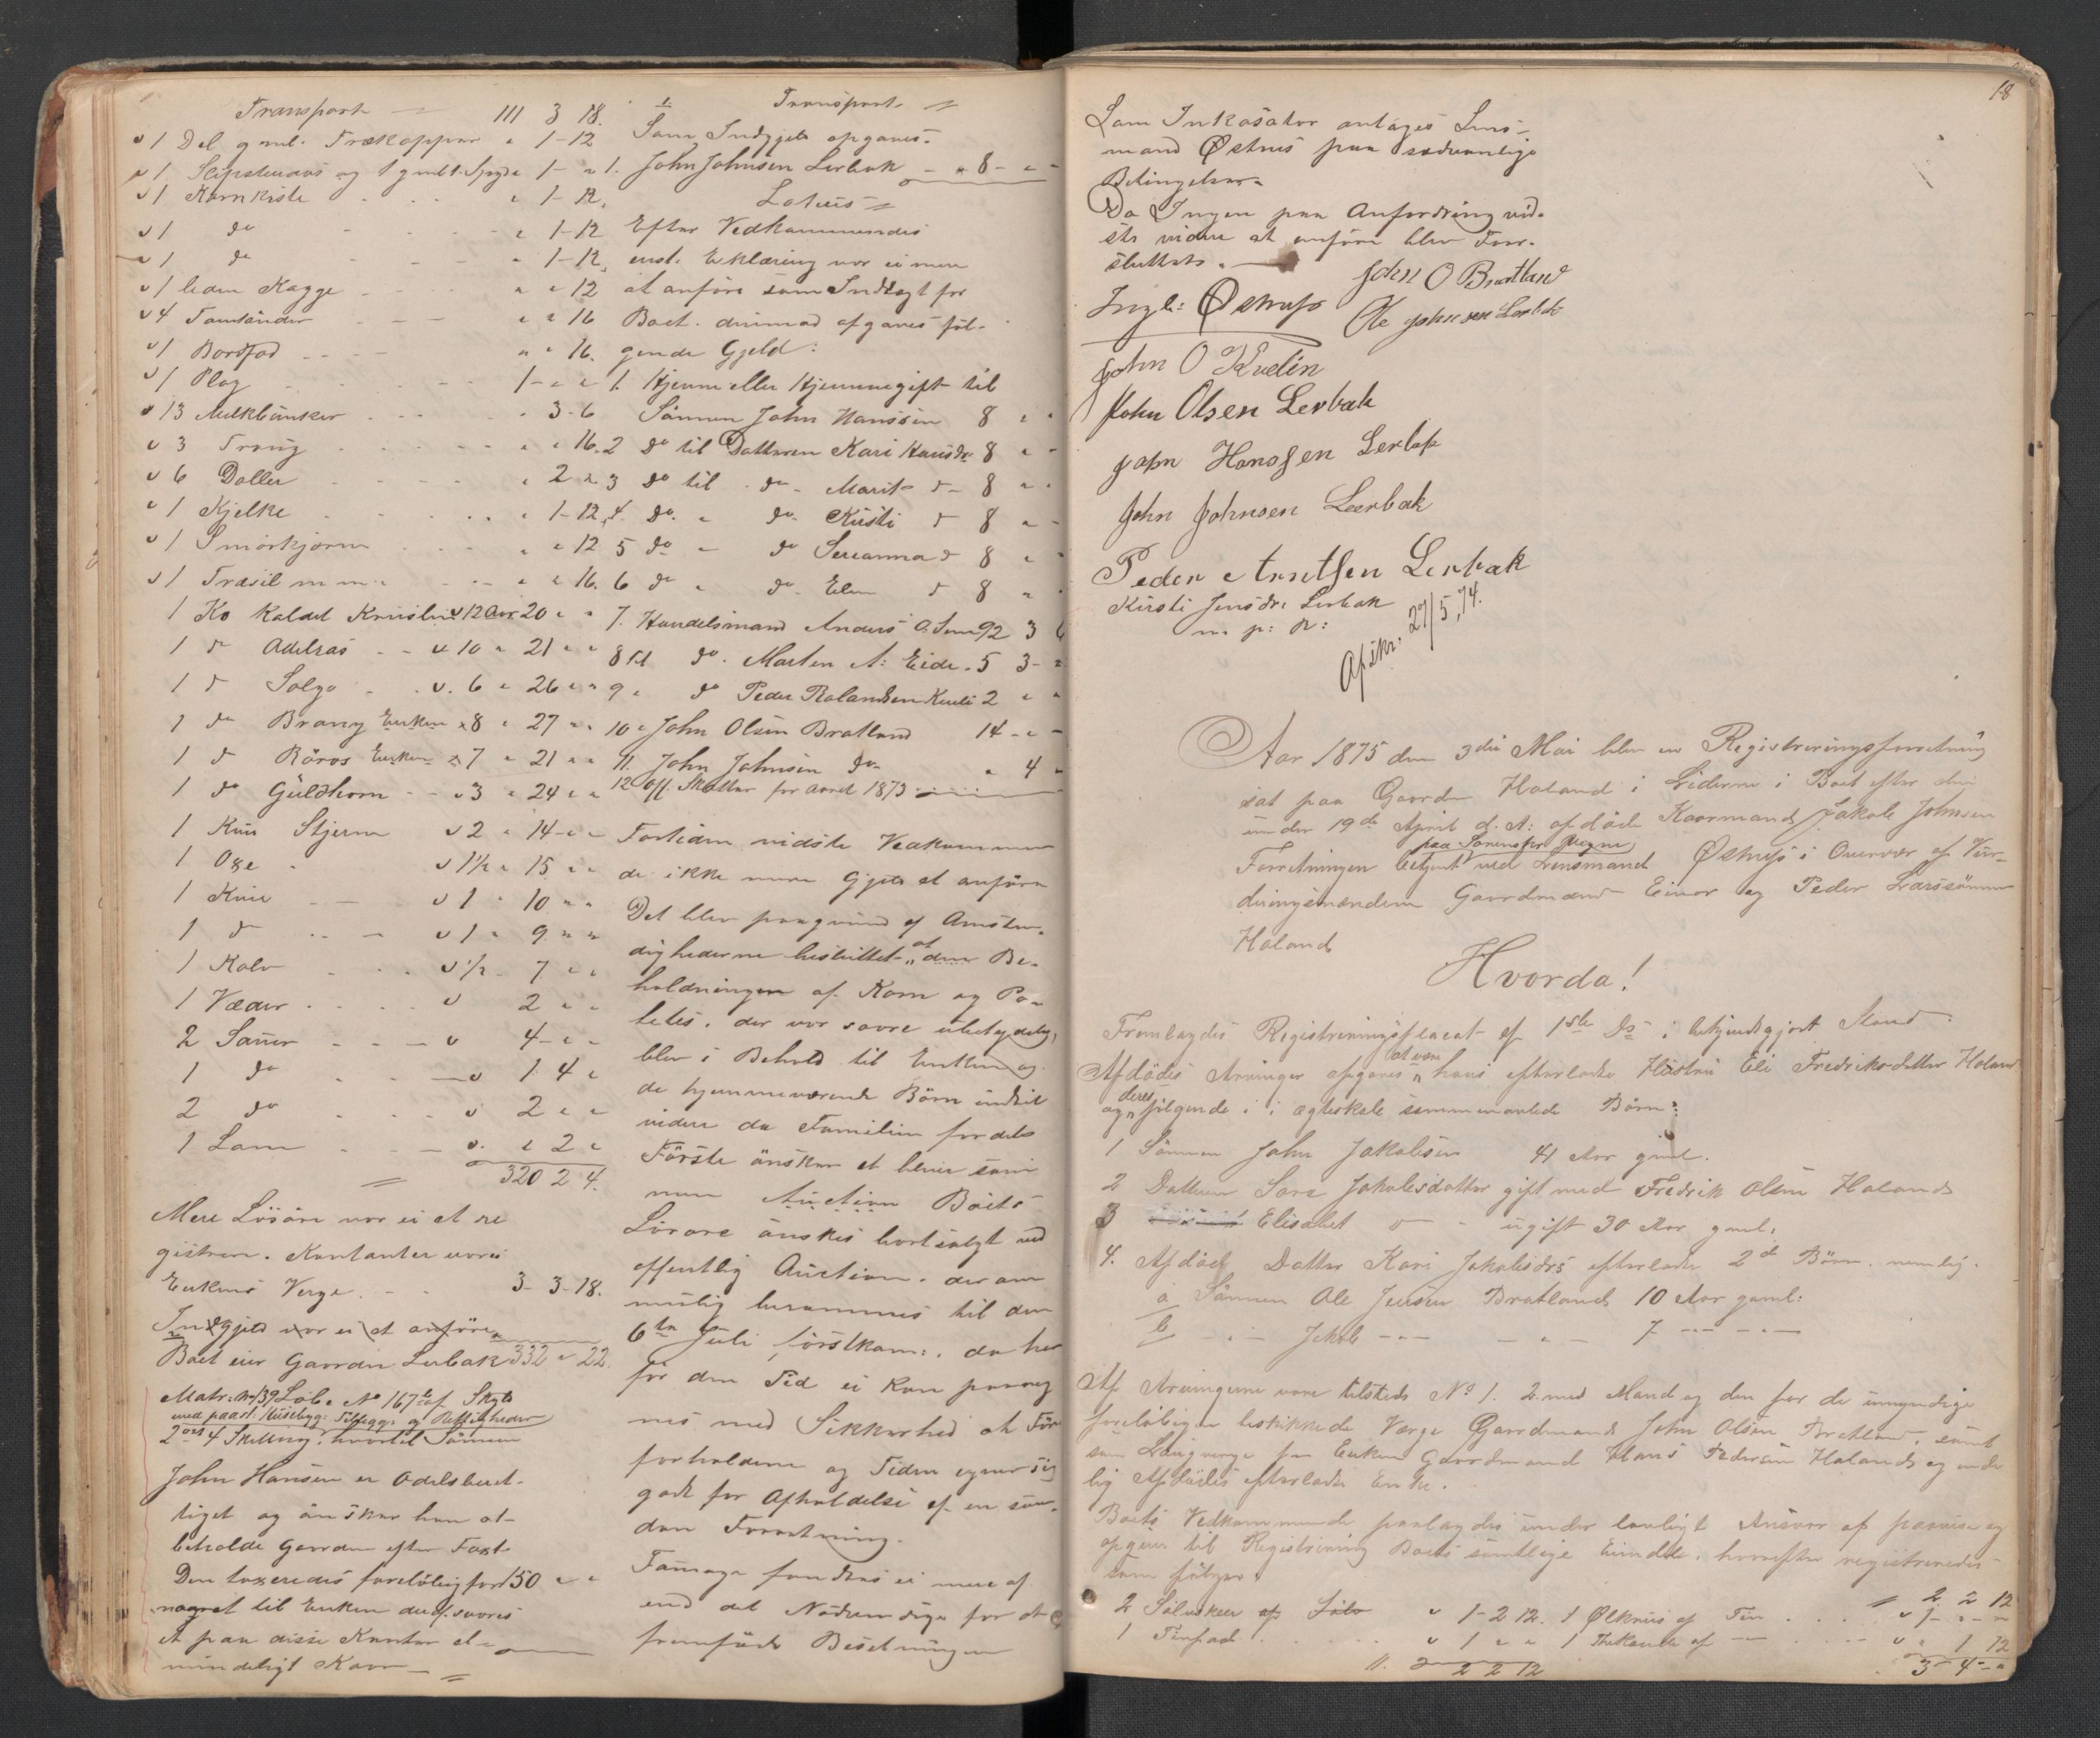 Transport 111 3 18.
1 Del gml. " 1-12
1 Slipsteens og 1 gml. 1 - "
1 Kornkiste " 1-12
1 do " 1-12
1 do " 1-12
1 liden Kagge " " 12
4 " " 16
1 Bordfad " " 16.
1 Plog 1 - " "
13 Melkbunker " 3-6
3 Traug " " 16.
6 Daller " 2 "
1 Kjelke " 1-12
1 Smörkjerne " " 12
1 Træsil m m. " " 16.
1 Ko kaldet 12 Aar 20 " "
1 do Adelraas 10 " 21 " "
1 do Solgo 6 " 26 " "
1 do Brany Enken 8 " 27 " "
1 do Röros Enken 7 " 21 " "
1 do Guldhorn 3 " 24 " "
1 Kvie Stjerne 2 " 14 - " "
1 Oxe 1½ " 15 " "
1 Kvie 1 " 10 " "
1 do 1 " 9 " "
1 Kalv ½ " 7 " "
1 Væder 2 " "
2 Sauer 4 - " "
1 do 1 4 "
2 do 2 " "
1 Lam " 2 "
320 2 4.
Mere Lösöre var ei at re
gistrere. Kontanter vare i
Enkens Verge 3-3-18.
Indgjeld var ei at anföre
Boet eier Gaarden Lerbak 332 " 22.
Matr: No 139 Löbe No 167 af Skyld
med paast. Huusebyg: Tillægg: og Rettigheder
2 ort 4 Skilling, hvortil Sönnen
John Hansen er Odelsberet-
tiget og önsker han at
beholde Gaarden efter Taxt
Den taxeredes foreløbig for 150 " "
noget til Enken deraf svares
et paa disse Kanter al-
mindeligt Kaar
Transport
Som Indgjeld opgaves.
1. John Johnsen Lerbak " 8 - " -
Latus
Efter Vedkommendes
enst. Erklæring var ei mere
at anföre som Indtægt for
Boet. derimod opgaves föl-
gende Gjeld:
1. Hjemme eller Hjemmegift til
Sönnen John Hanssen 8 " "
2 do til Datteren Kari Hansdr 8 " -
3 do til do Marit do 8 " "
4. do " do Kirsti do 8 " -
5 do " do Sereanna do 8 " -
6 do " do Elen do 8 " "
7. Handelsmand Anders O. Sem 92 3 6
8 til do. Morten A: Eide 5 3 - "
9 " do Peder Rolandsen Kveli 2 " "
10 " John Olsen Bratland 14 - " -
11. John Johnsen do " 4 "
12 Off. Skatter for Aaret 1873
Fortiden vidste Vedkommen
de ikke mere Gjeld at anföre
Det blev paagrund af Omsten-
dighederne besluttet at den Be-
holdningen af Korn og Po-
tetes, der var saare ubetydelig,
blev i Behold til Enken og
de hjemmeværende Börn indtil
videre da Familien fordets
Förste önsker at bleve sam
men Auction Boets
Lösöre önskes bortsolgt ved
offentlig Auction, der om
mulig berammes til den
6te Juli förstkom:, da her
för den Tid ei kan paareg
nes med Sikkerhed at För
forholdene og Tiden egner sig
godt for Afholdelse af en saa-
dan Forretning.
Fourage fandtes ei mere af
end det Nödvendige for at
fremföde Besetningen
18
Som Inkasator antages Lens-
mand Østnes paa sædvanlige
Betingelser.
Da Ingen paa Anfordring vid-
ste videre at anföre blev Forr.
sluttet.
John O Bratland
Ingb: Østnes Ole Johnsen Lerbak
John O Kvelin
John Olsen Lerbak
John Hanssen Lerbak
John Johnsen Leerbak
Peder Arntsen Lerbak
Kirsti Jensdr: Lerbak
m. p: P:
Afskr. 27/5,74.
Aar 1875 den 3die Mai blev en Registreringsforretning
sat paa Gaarden Holand i Lierne i Boet efter den
under 19de April d. A: afdöde Kaarmand Jakob Johnsen
paa Sorensk: Vegne
Forretningen betjent ved Lensmand Østnes i Overvær af Vur-
deringsmændene Gaardmænd Einar og Peder Larssönner
Holand
Hvorda!
Fremlagdes Registreringsplacat af 1ste Ds i bekjendtgjort Stand.
Afdödes Arvinger opgaves at være hans efterladte Hustru Eli Fredriksdatter Holand
og deres fölgende i ægteskab sammenavlede Börn:
1 Sönnen John Jakobsen 41 Aar gml.
2 Datteren Sara Jakobsdatter gift med Fredrik Olsen Holand
3 Elisabet do - ugift 30 Aar gml.
4. Afdöde Datter Kari Jakobsdrs efterladte 2de Börn. nemlig.
a Sönnen Ole Jensen Bratland 10 Aar gaml:
b - " - Jakob - " - - " - 7 - " - - " -
Af Arvingerne vare tilstede No 1. 2. med Mand og den for de umyndige
foreløbigen beskikkede Værge Gaardmand John Olsen Bratland, samt
som Laugverge for Enken Gaardmand Hans Pedersen Holand og ende
lig Afdödes efterladte Enke.
Boets Vedkommende paalagdes under lovligt Ansvar at paavise og
opgive til Registrering Boets samtlige Eiendele, hvorefter registreredes
som fölger:
2 2 12
2 Sölvskeer af Sölv 1-2 12. 1 Ølkrus af Tin 1 - " - "
1 Tinfad 1 " " 1 Thekande af - " 1 12
2 2 12 3 - 4 - "